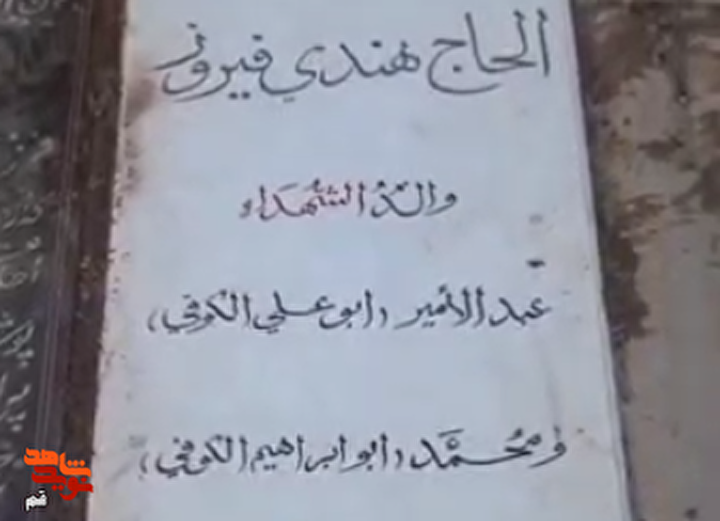 الحاج هندي فيروز
والدُ الشُهَداء
عبد الأمير (ابو علي الكوفي)
و محمَّد (ابو ابراهيم الكوفي)
نوید شاهد
قم